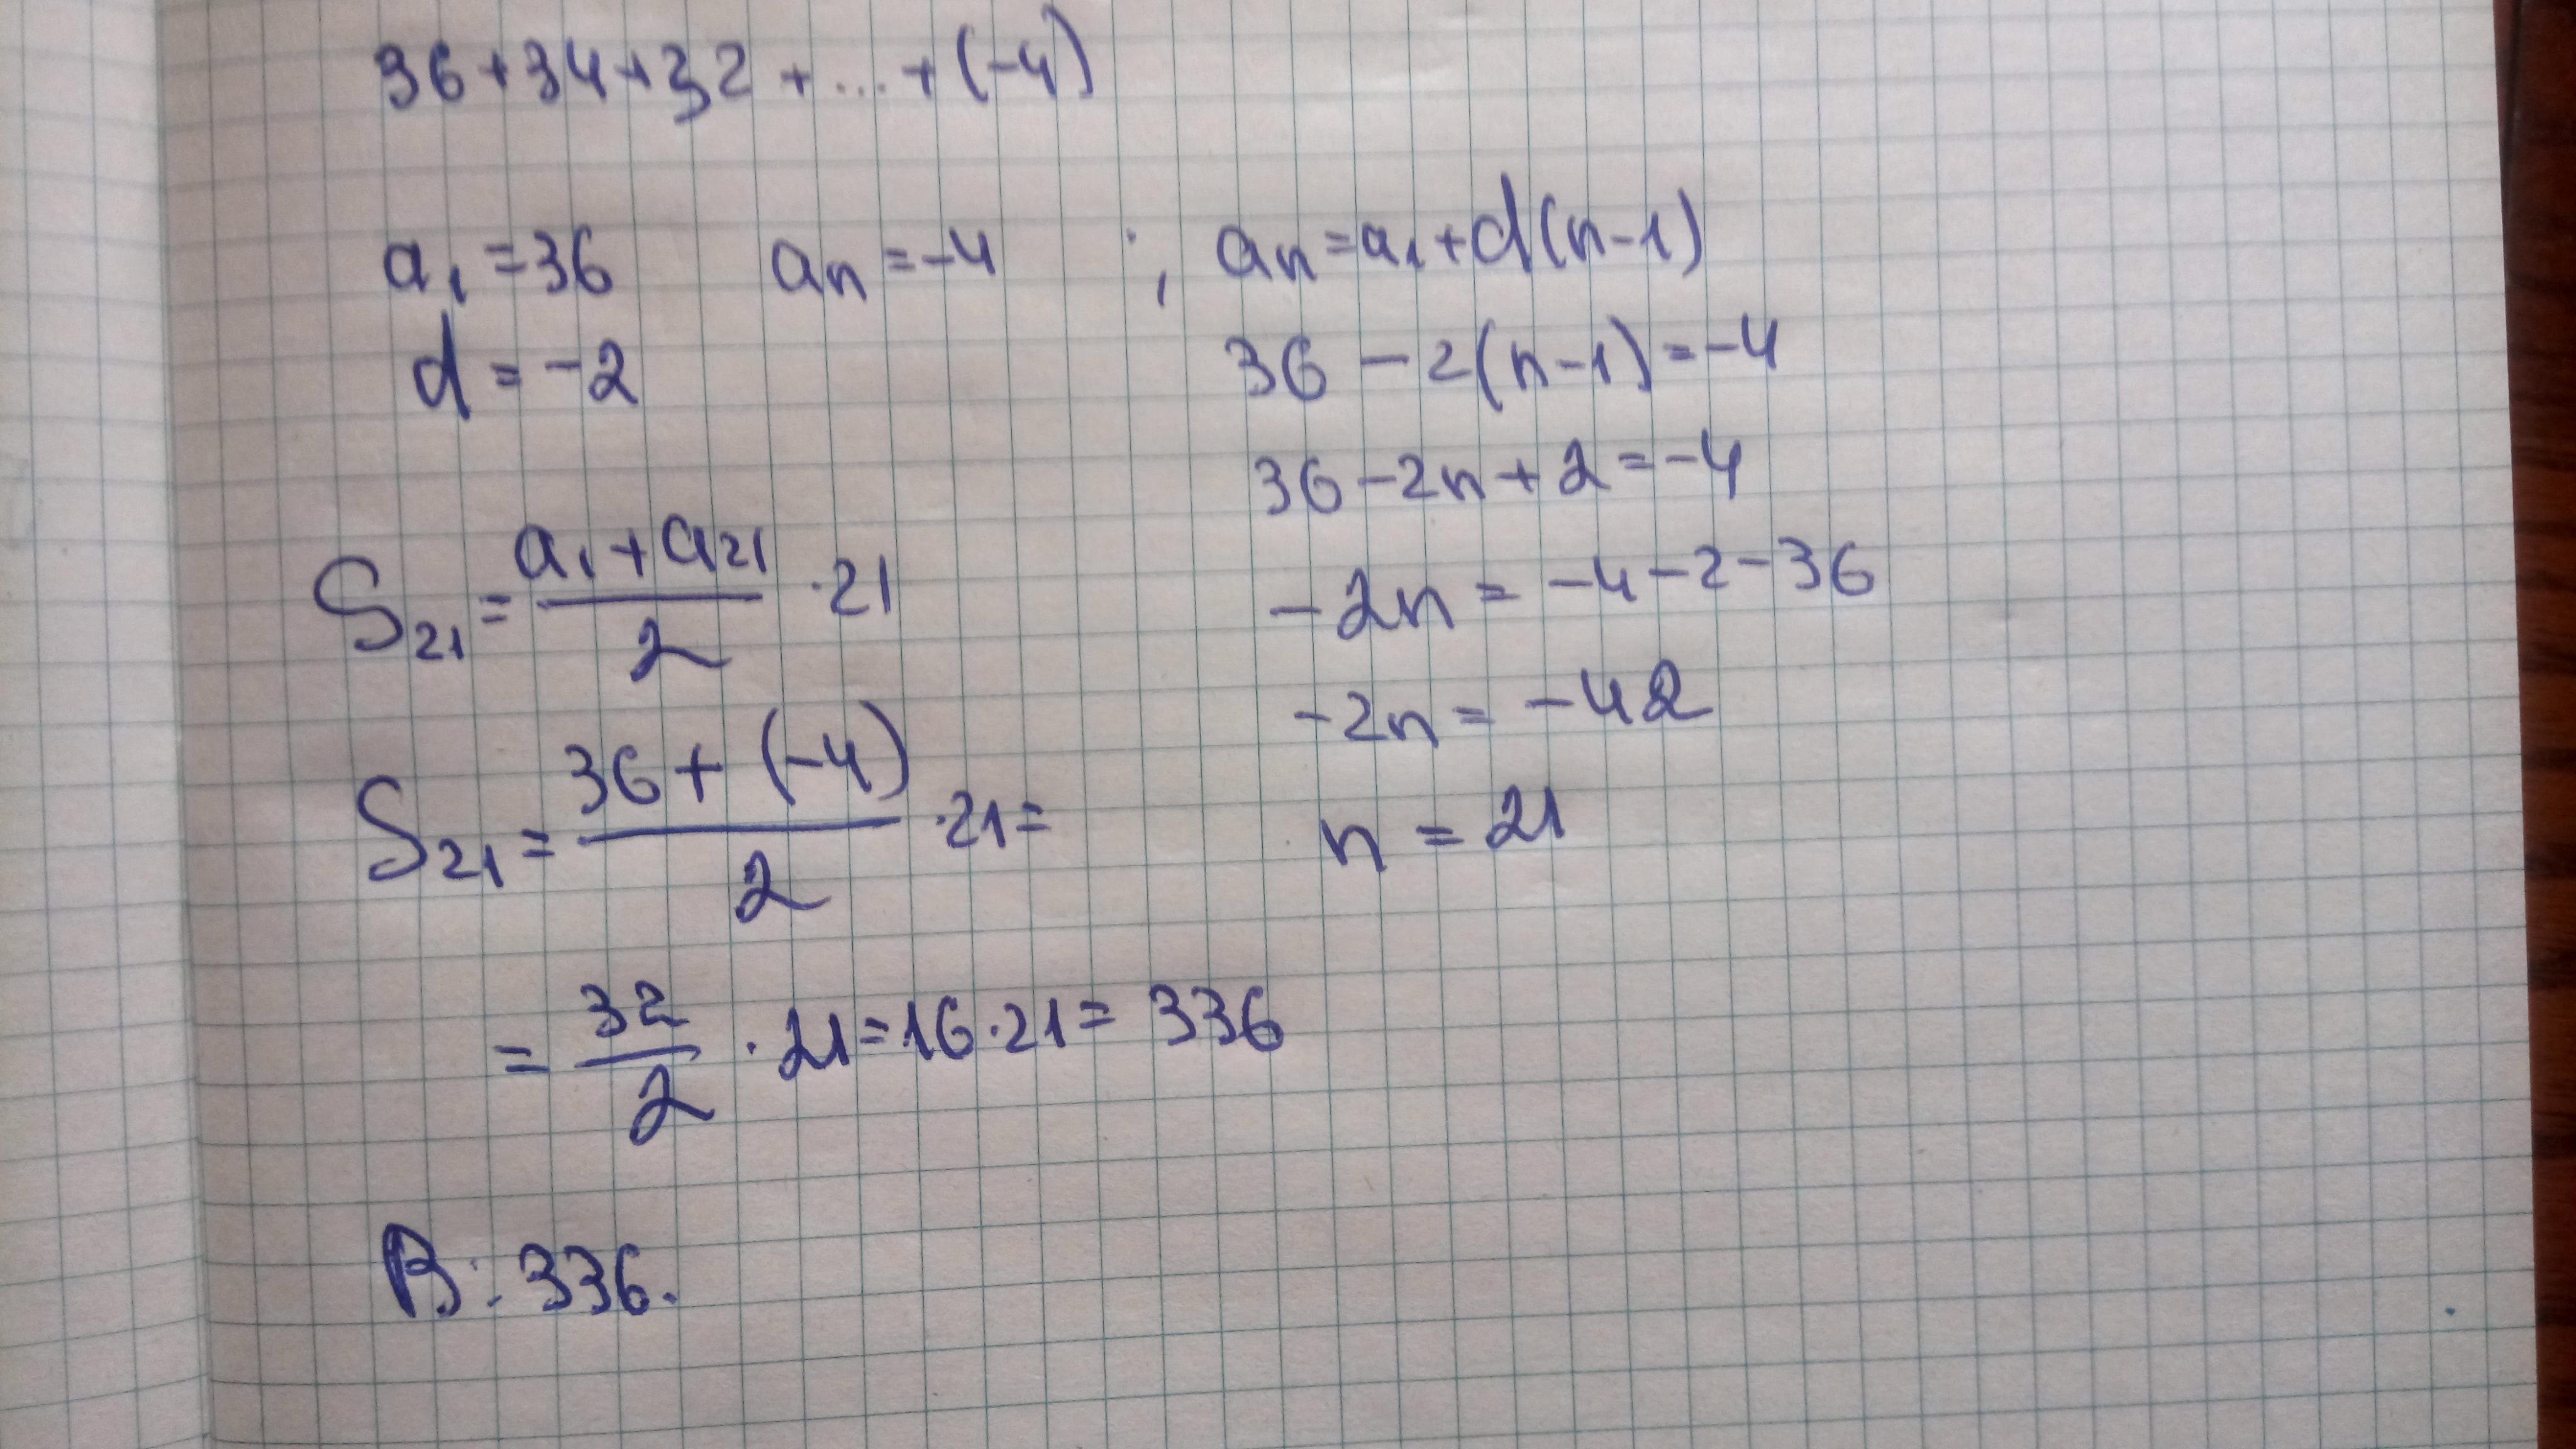 36+34+32+...+(-4)
a₁=36 aₙ=-4 ; aₙ=a₁+d(n-1)
d=-2
36-2(n-1)=-4
36-2n+2=-4
-2n=-4-2-36
-2n=-42
n=21
S₂₁=(a₁+a₂₁)/2·21
S₂₁=(36+(-4))/2·21=
=32/2·21=16·21=336
В: 336.